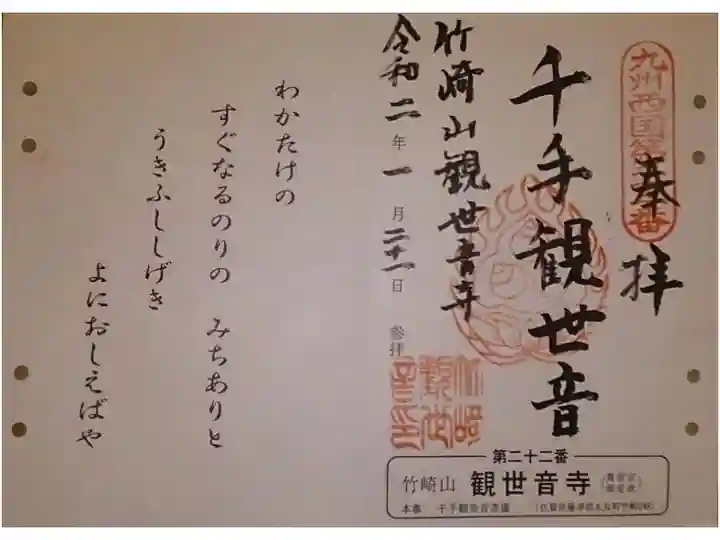 奉拝
千手観世音
竹崎山観世音寺
令和二年一月二十一日 参拝
わかたけの
すぐなるのりの みちありと
うきふししげき
よにおしえばや
第二十二番
竹崎山 観世音寺
本尊 千手観世音菩薩
九州西国
番